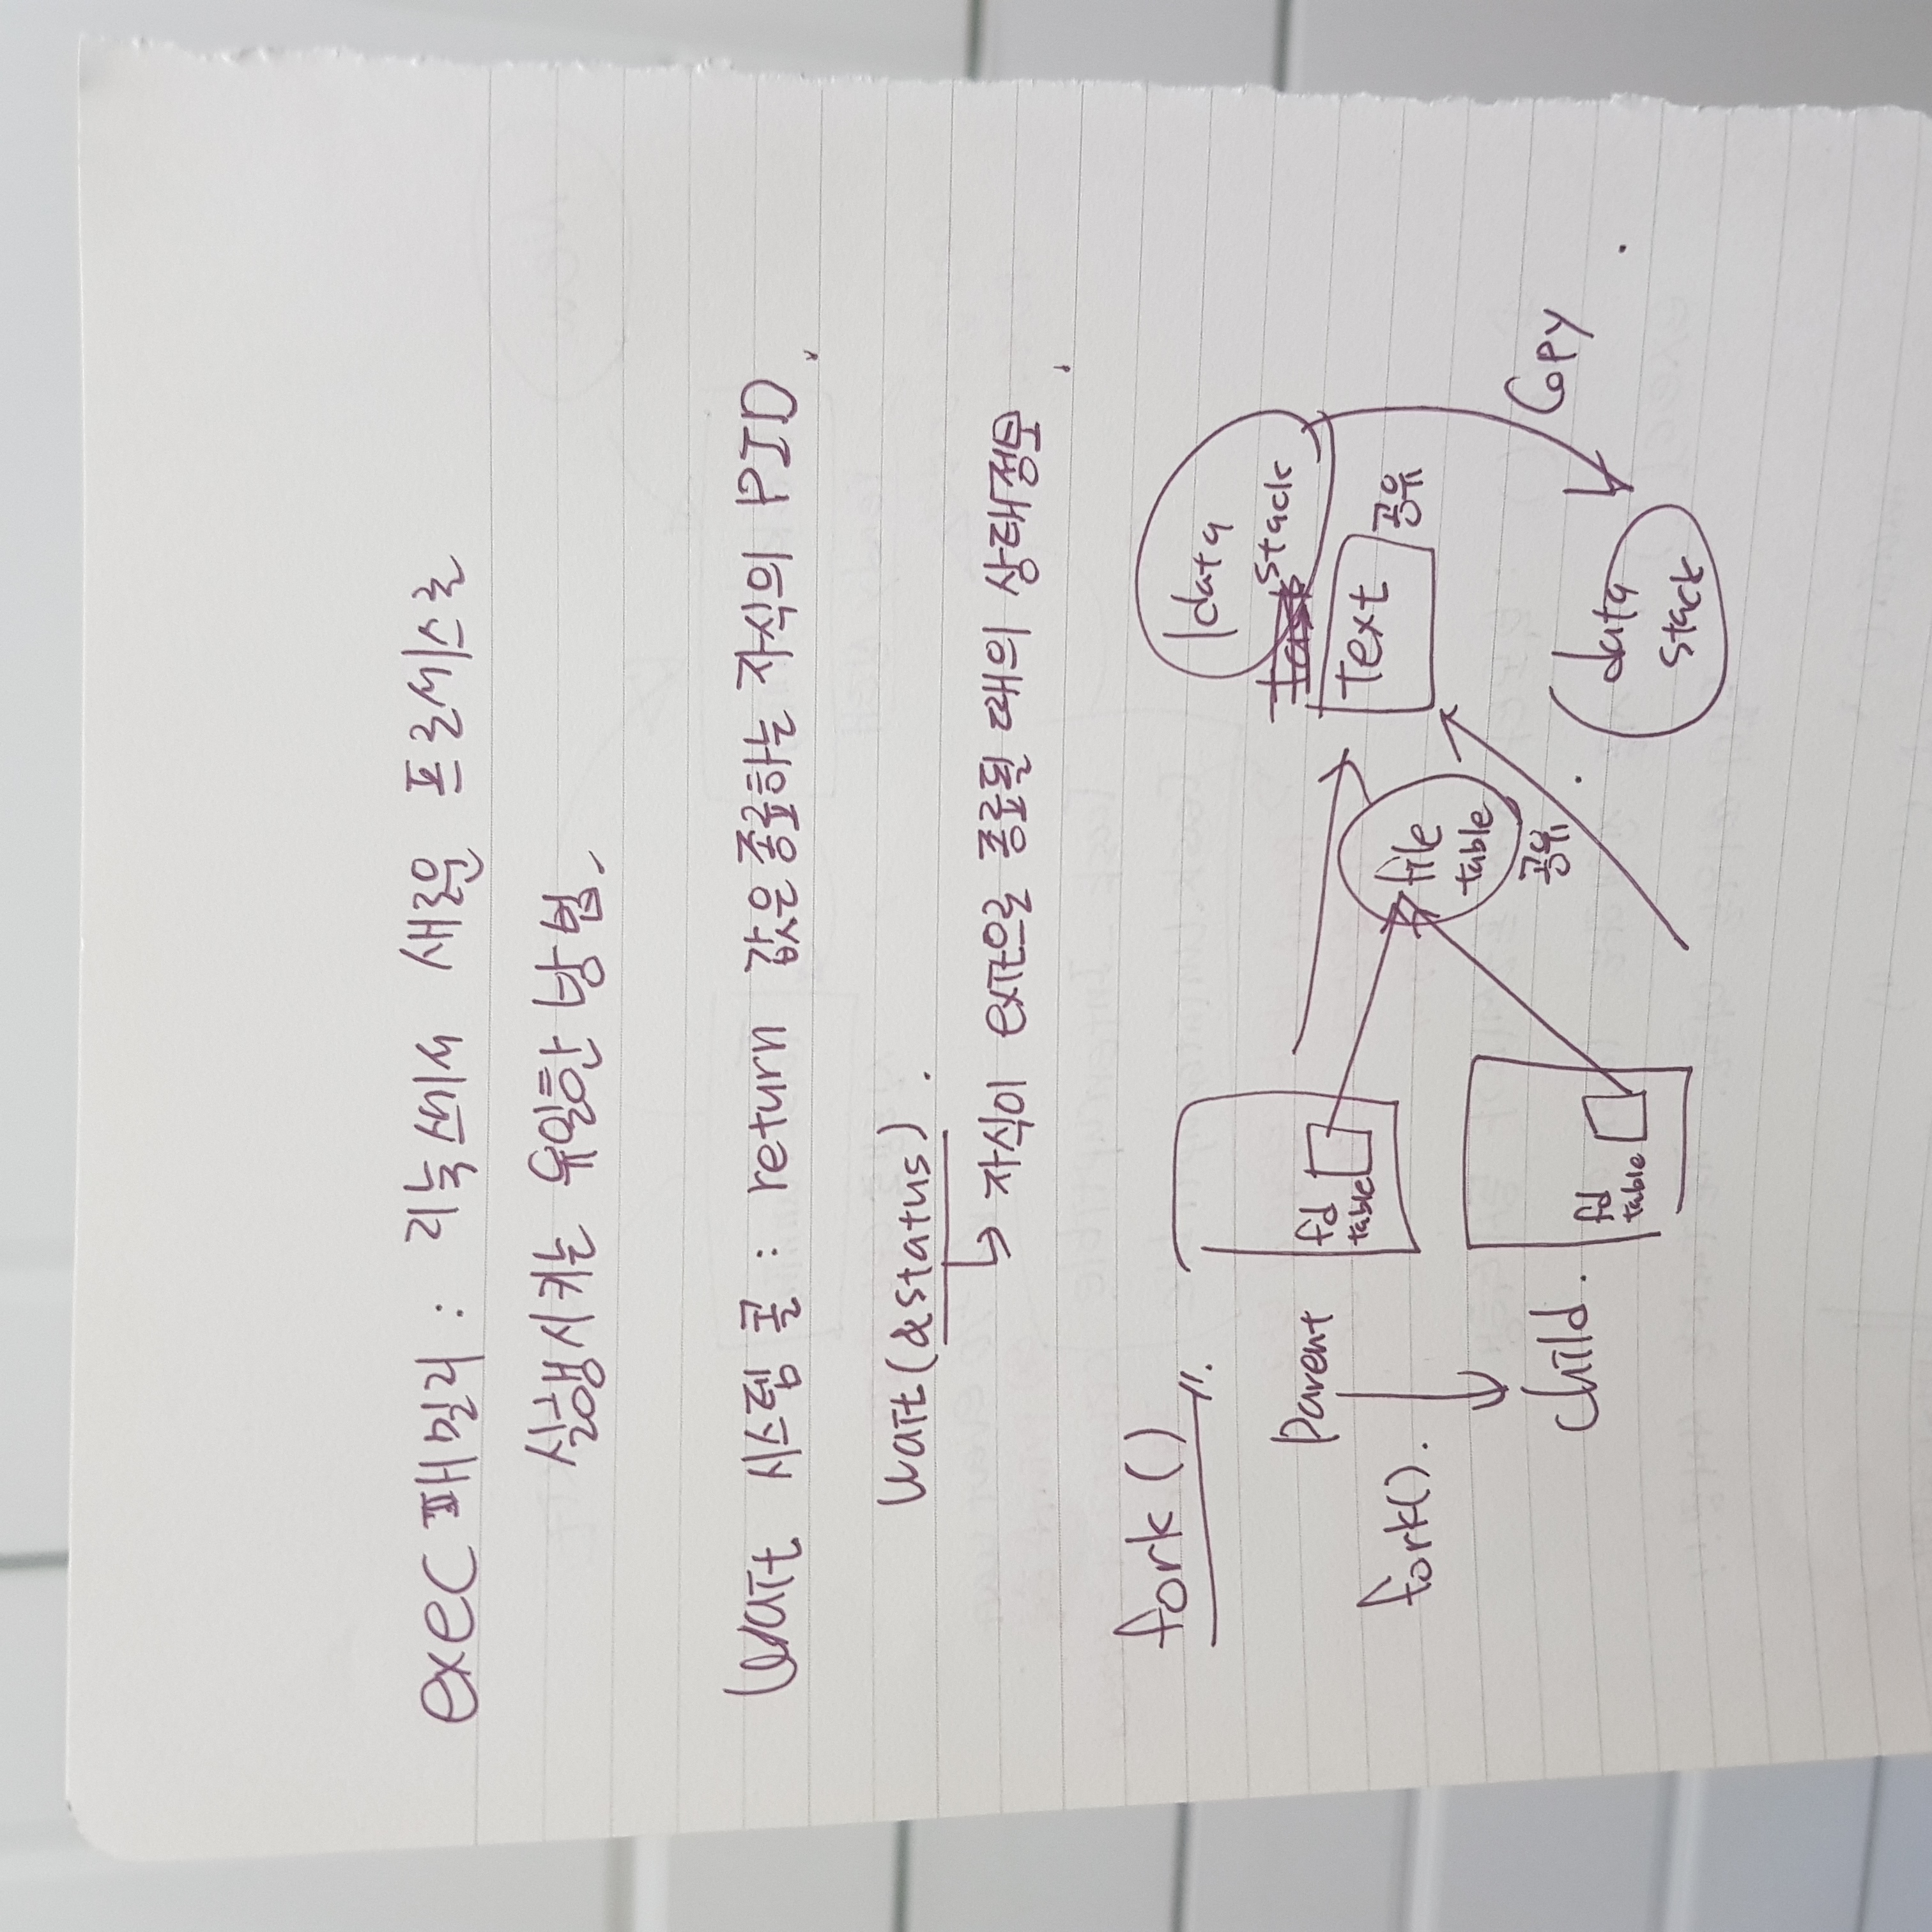 exec 패밀리 : 리눅스에서 새로운 프로세스로
실행시키는 유일한 방법.
Wait 시스템 콜 : return 값은 종료하는 자식의 PID.
Wait(&status).
↳ 자식이 exit으로 종료될 때의 상태정보.
fork()
Parent
fork().
child.
fd
table
fd
table
file
table
공유
data
stack
Text
공유
Copy
data
stack